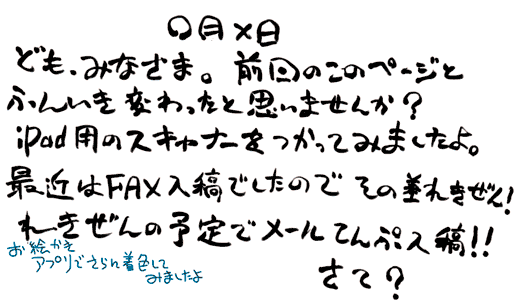 〇月×日
ども、みなさま。前回のこのページと
ふんいき変わったと思いませんか？
iPad用のスキャナーをつかってみましたよ。
最近はFAX入稿でしたので その差れきぜん!
れきぜんの予定でメールてんぷ入稿!!
お絵かき
アプリでさらに着色して
みましたよ
さて？